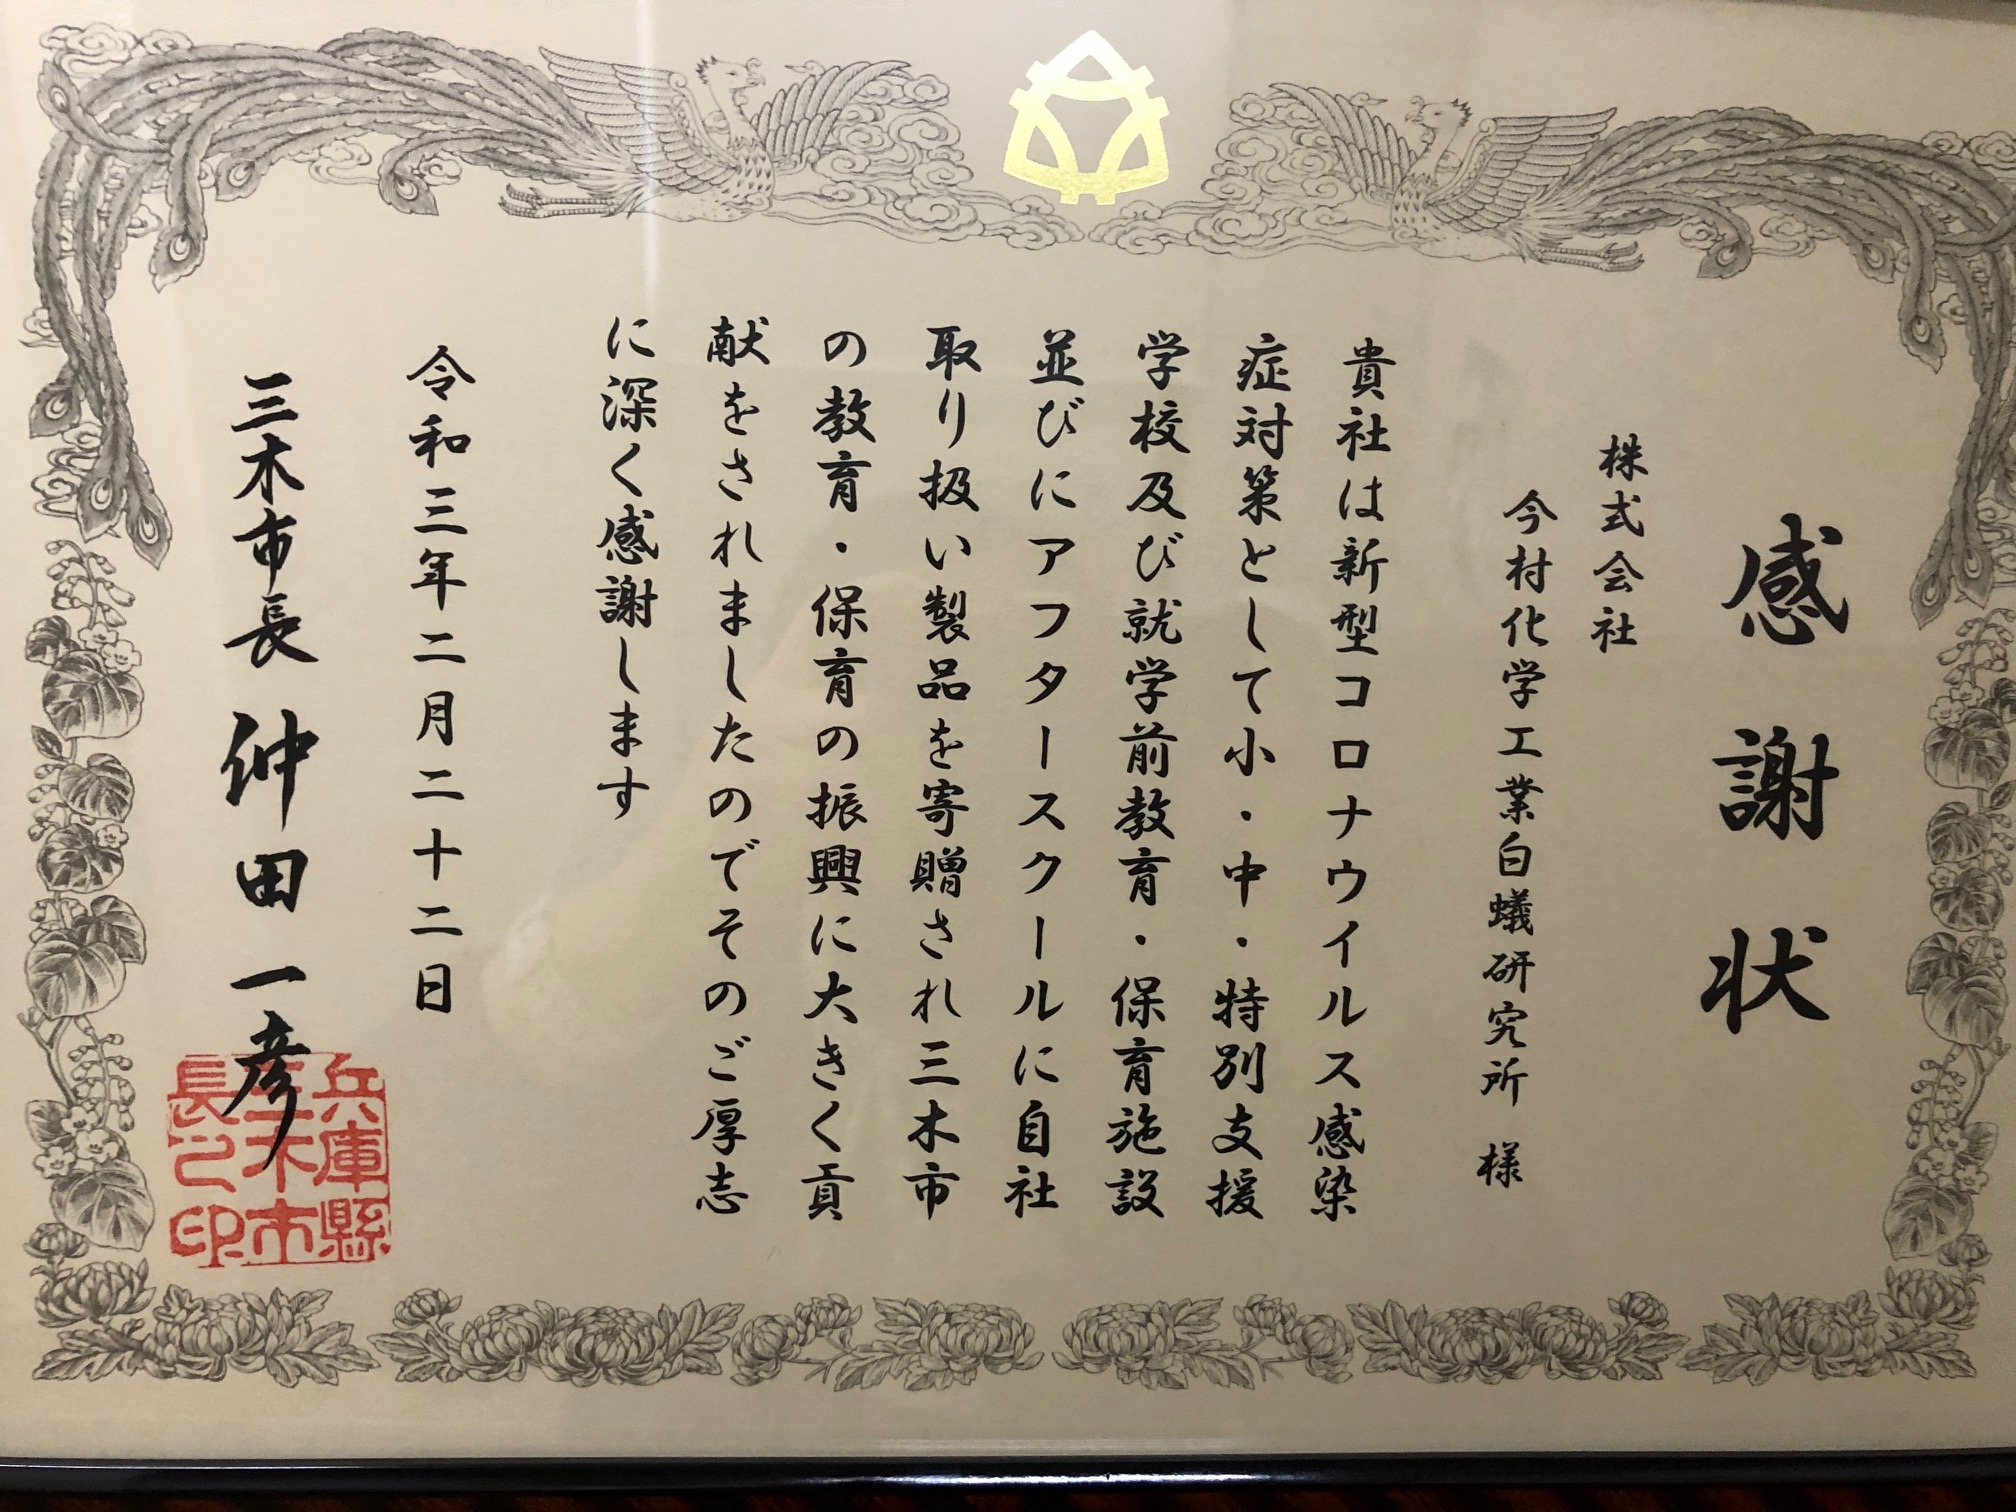 感謝状
株式会社
今村化学工業白蟻研究所 様
貴社は新型コロナウイルス感染
症対策として小・中・特別支援
学校及び就学前教育・保育施設
並びにアフタースクールに自社
取り扱い製品を寄贈され三木市
の教育・保育の振興に大きく貢
献をされましたのでそのご厚志
に深く感謝します
令和三年二月二十二日
三木市長 仲田一彦
兵庫縣
三木市
長之印